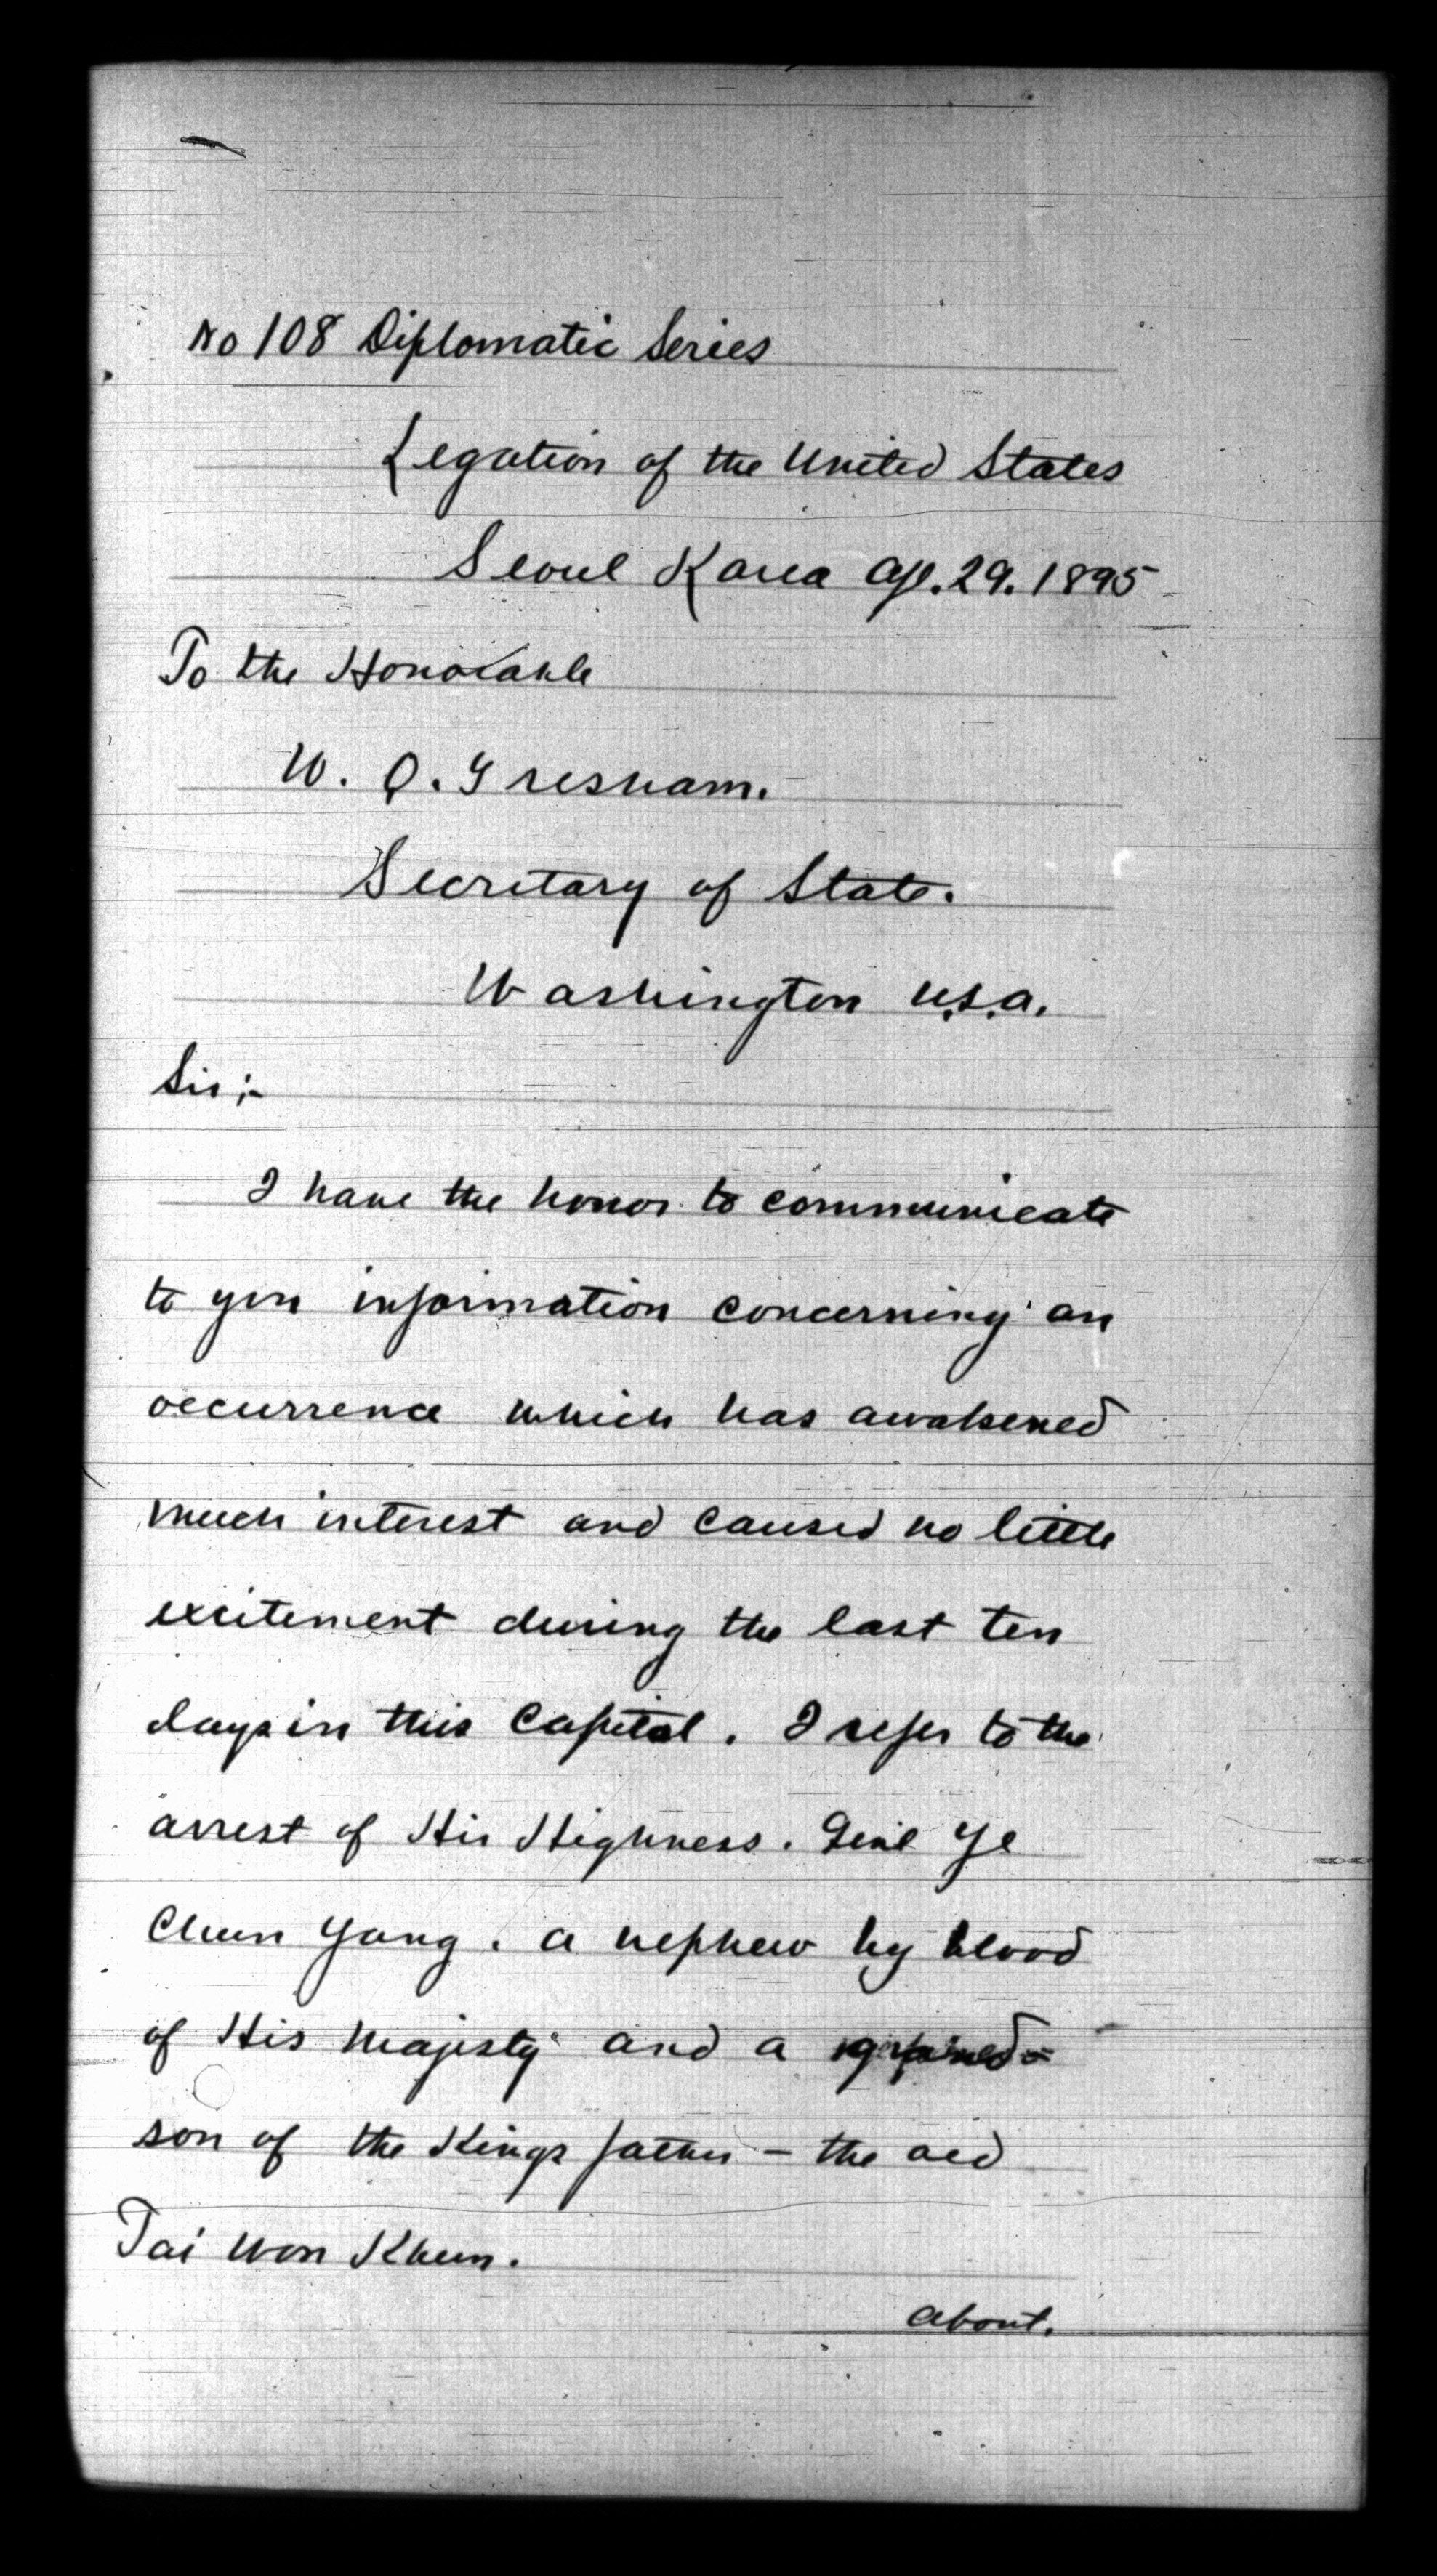 No 108 Diplomatic Series
Legation of the United States
Seoul Korea Ap. 29. 1895
To the Honorable
W. Q. Gresham.
Secretary of State.
Washington U.S.A.
Sir;-
I have the honor to communicate
to you information concerning an
occurrence which has awakened
much interest and caused no little
excitement during the last ten
days in this Capital. I refer to the
arrest of His Highness. Genl Ye
Chun Yong. a nephew by blood
of His Majesty and a grand-
son of the Kings father - the old
Tai Won Khun.
about.